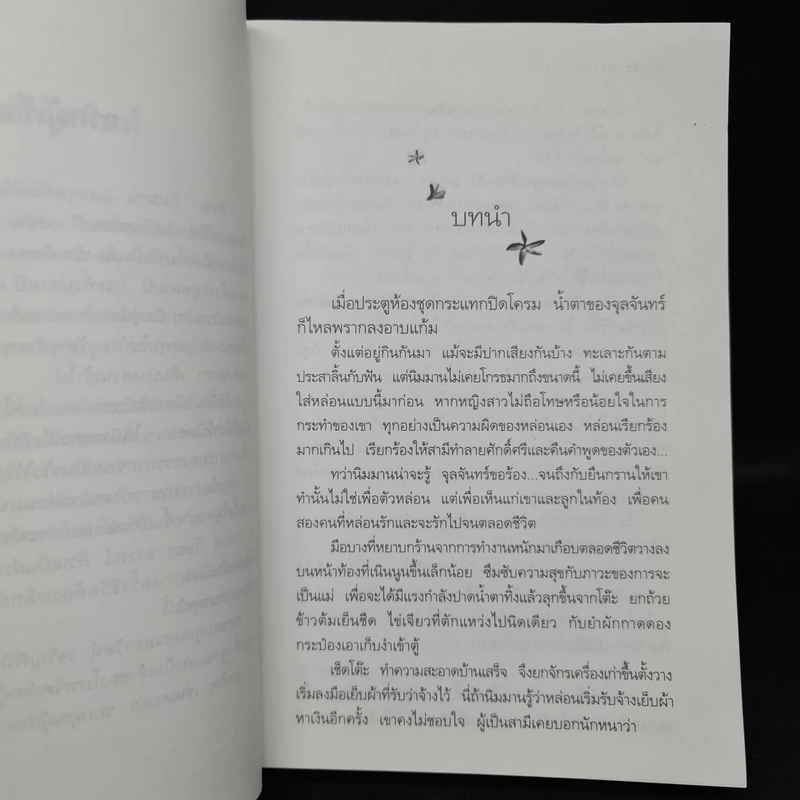 บทนำ
เมื่อประตูห้องชุดกระแทกปิดโครม น้ำตาของจุลจันทร์
ก็ไหลพรากลงอาบแก้ม
ตั้งแต่อยู่กินกันมา แม้จะมีปากเสียงกันบ้าง ทะเลาะกันตาม
ประสาลิ้นกับฟัน แต่นิมมานไม่เคยโกรธมากถึงขนาดนี้ ไม่เคยขึ้นเสียง
ใส่หล่อนแบบนี้มาก่อน หากหญิงสาวไม่ถือโทษหรือน้อยใจในการ
กระทำของเขา ทุกอย่างเป็นความผิดของหล่อนเอง หล่อนเรียกร้อง
มากเกินไป เรียกร้องให้สามีทำลายศักดิ์ศรีและคืนคำพูดของตัวเอง...
ทว่านิมมานน่าจะรู้ จุลจันทร์ขอร้อง...จนถึงกับยืนกรานให้เขา
ทำนั้นไม่ใช่เพื่อตัวหล่อน แต่เพื่อเห็นแก่เขาและลูกในท้อง เพื่อคน
สองคนที่หล่อนรักและจะรักไปจนตลอดชีวิต
มือบางที่หยาบกร้านจากการทำงานหนักมาเกือบตลอดชีวิตวางลง
บนหน้าท้องที่เนินนูนขึ้นเล็กน้อย ซึมซับความสุขกับภาวะของการจะ
เป็นแม่ เพื่อจะได้มีแรงกำลังปาดน้ำตาทิ้งแล้วลุกขึ้นจากโต๊ะ ยกถ้วย
ข้าวต้มเย็นชืด ไข่เจียวที่ตักแหว่งไปนิดเดียว กับยำผักกาดดอง
กระป๋องเอาเก็บงำเข้าตู้
เช็ดโต๊ะ ทำความสะอาดบ้านเสร็จ จึงยกจักรเครื่องเก่าขึ้นตั้งวาง
เริ่มลงมือเย็บผ้าที่รับว่าจ้างไว้ นี่ถ้านิมมานรู้ว่าหล่อนเริ่มรับจ้างเย็บผ้า
หาเงินอีกครั้ง เขาคงไม่ชอบใจ ผู้เป็นสามีเคยบอกนักหนาว่า